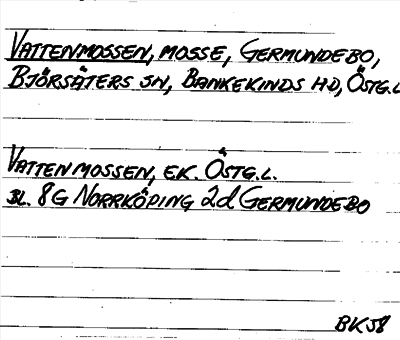 VATTENMOSSEN, MOSSE, GERMUNDEBO,
BJÖRSÄTERS SN, BANKEKINDS HD, ÖSTG.L
VATTENMOSSEN, EK. ÖSTG.L.
BL. 8G NORRKÖPING 2d GERMUNDEBO
BK58